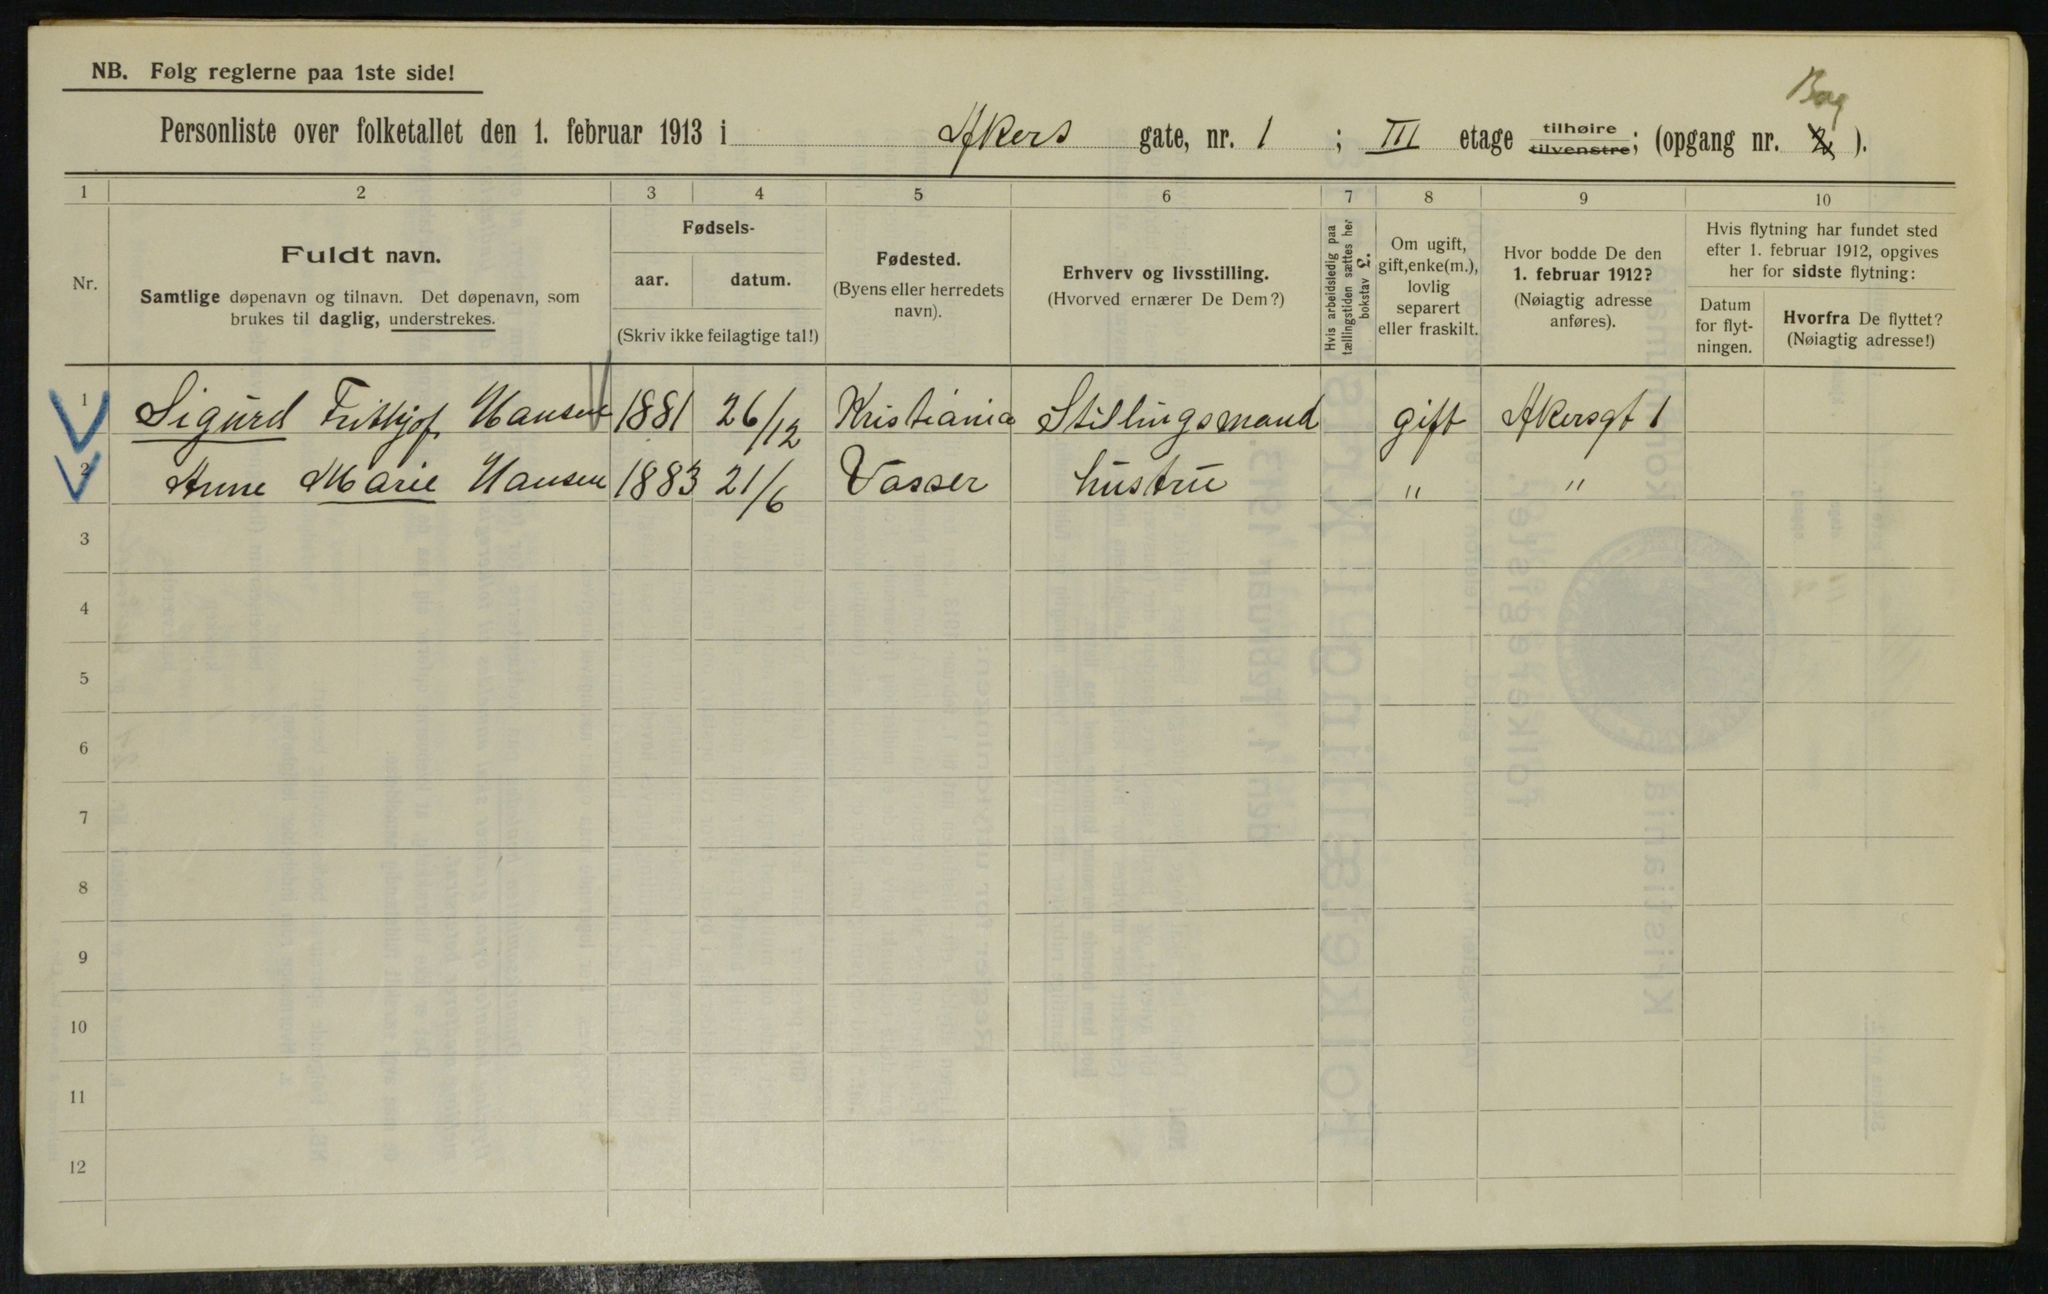 NB. Følg reglerne paa 1ste side!
Bag
Personliste over folketallet den 1. februar 1913 i Akers gate, nr. 1 ; III etage tilhøire tilvenstre; (opgang nr. 2 ).
1 2 3 4 5 6 7 8 9 10
Nr.
Fuldt navn.
Samtlige døpenavn og tilnavn. Det døpenavn, som
brukes til daglig, understrekes.
Fødsels-
aar. datum.
(Skriv ikke feilagtige tal!)
Fødested.
(Byens eller herredets
navn).
Erhverv og livsstilling.
(Hvorved ernærer De Dem?)
Hvis arbeidsledig paa
tællingstiden sættes her
bokstav L.
Om ugift,
gift, enke(m.),
lovlig
separert
eller fraskilt.
Hvor bodde De den
1. februar 1912?
(Nøiagtig adresse
anføres).
Hvis flytning har fundet sted
efter 1. februar 1912, opgives
her for sidste flytning:
Datum
for flyt-
ningen.
Hvorfra De flyttet?
(Nøiagtig adresse!)
1 Sigurd Frithjof Hansen 1881 26/12 Kristiania Stillingsmand gift Akersgt 1
2 Anne Marie Hansen 1883 21/6 Vasser hustru " "
3
4
5
6
7
8
9
10
11
12